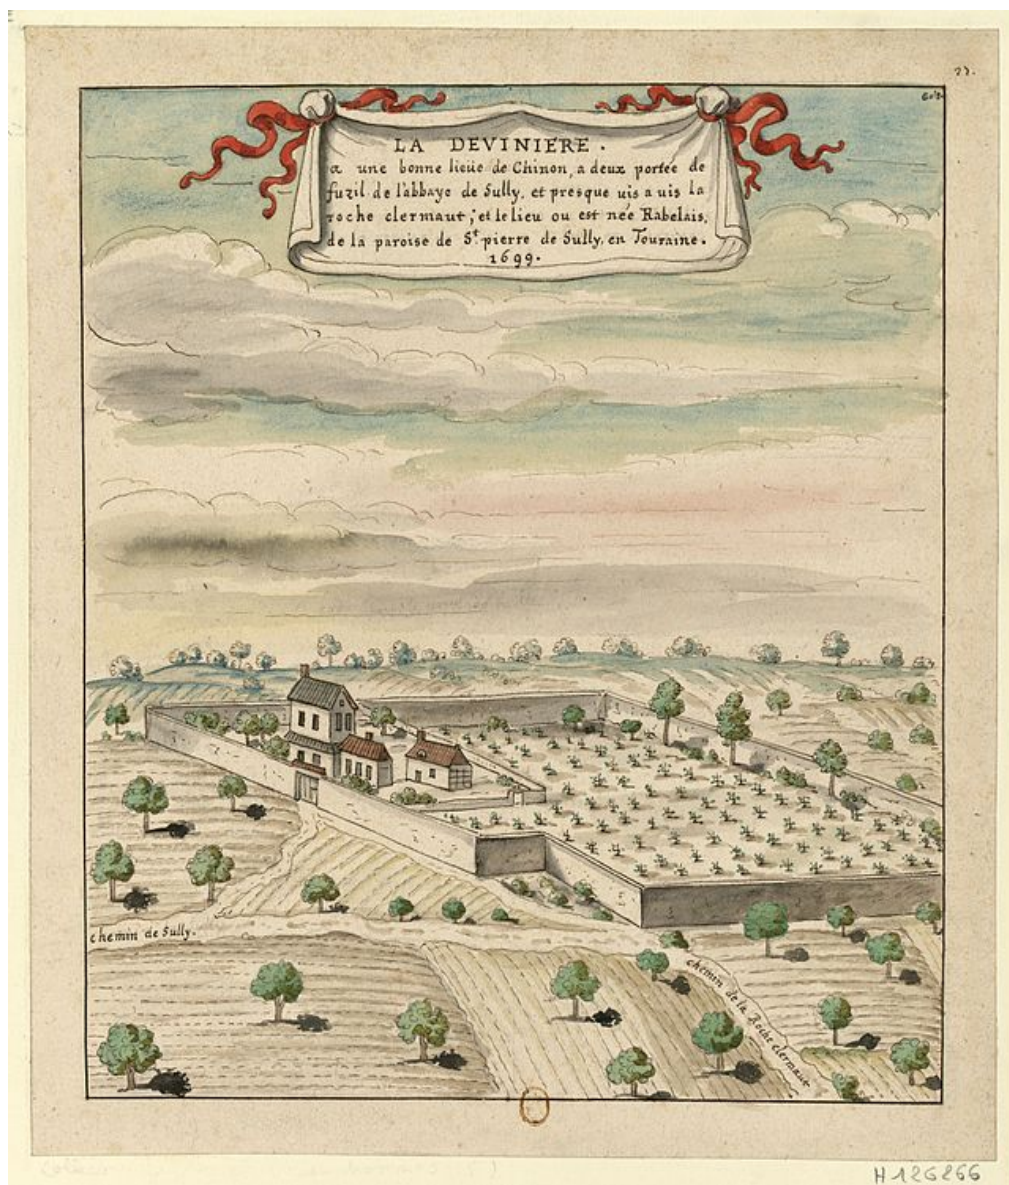 23.
LA DEVINIERE.
a une bonne lieüe de Chinon, a deux portée de
fuzil de l'abbaye de Sully, et presque uis a uis la
roche clermaut; et le lieu ou est née Rabelais,
de la paroise de St. pierre de Sully, en Touraine.
1699.
chemin de Sully.
chemin de la Roche clermaut
H 126266